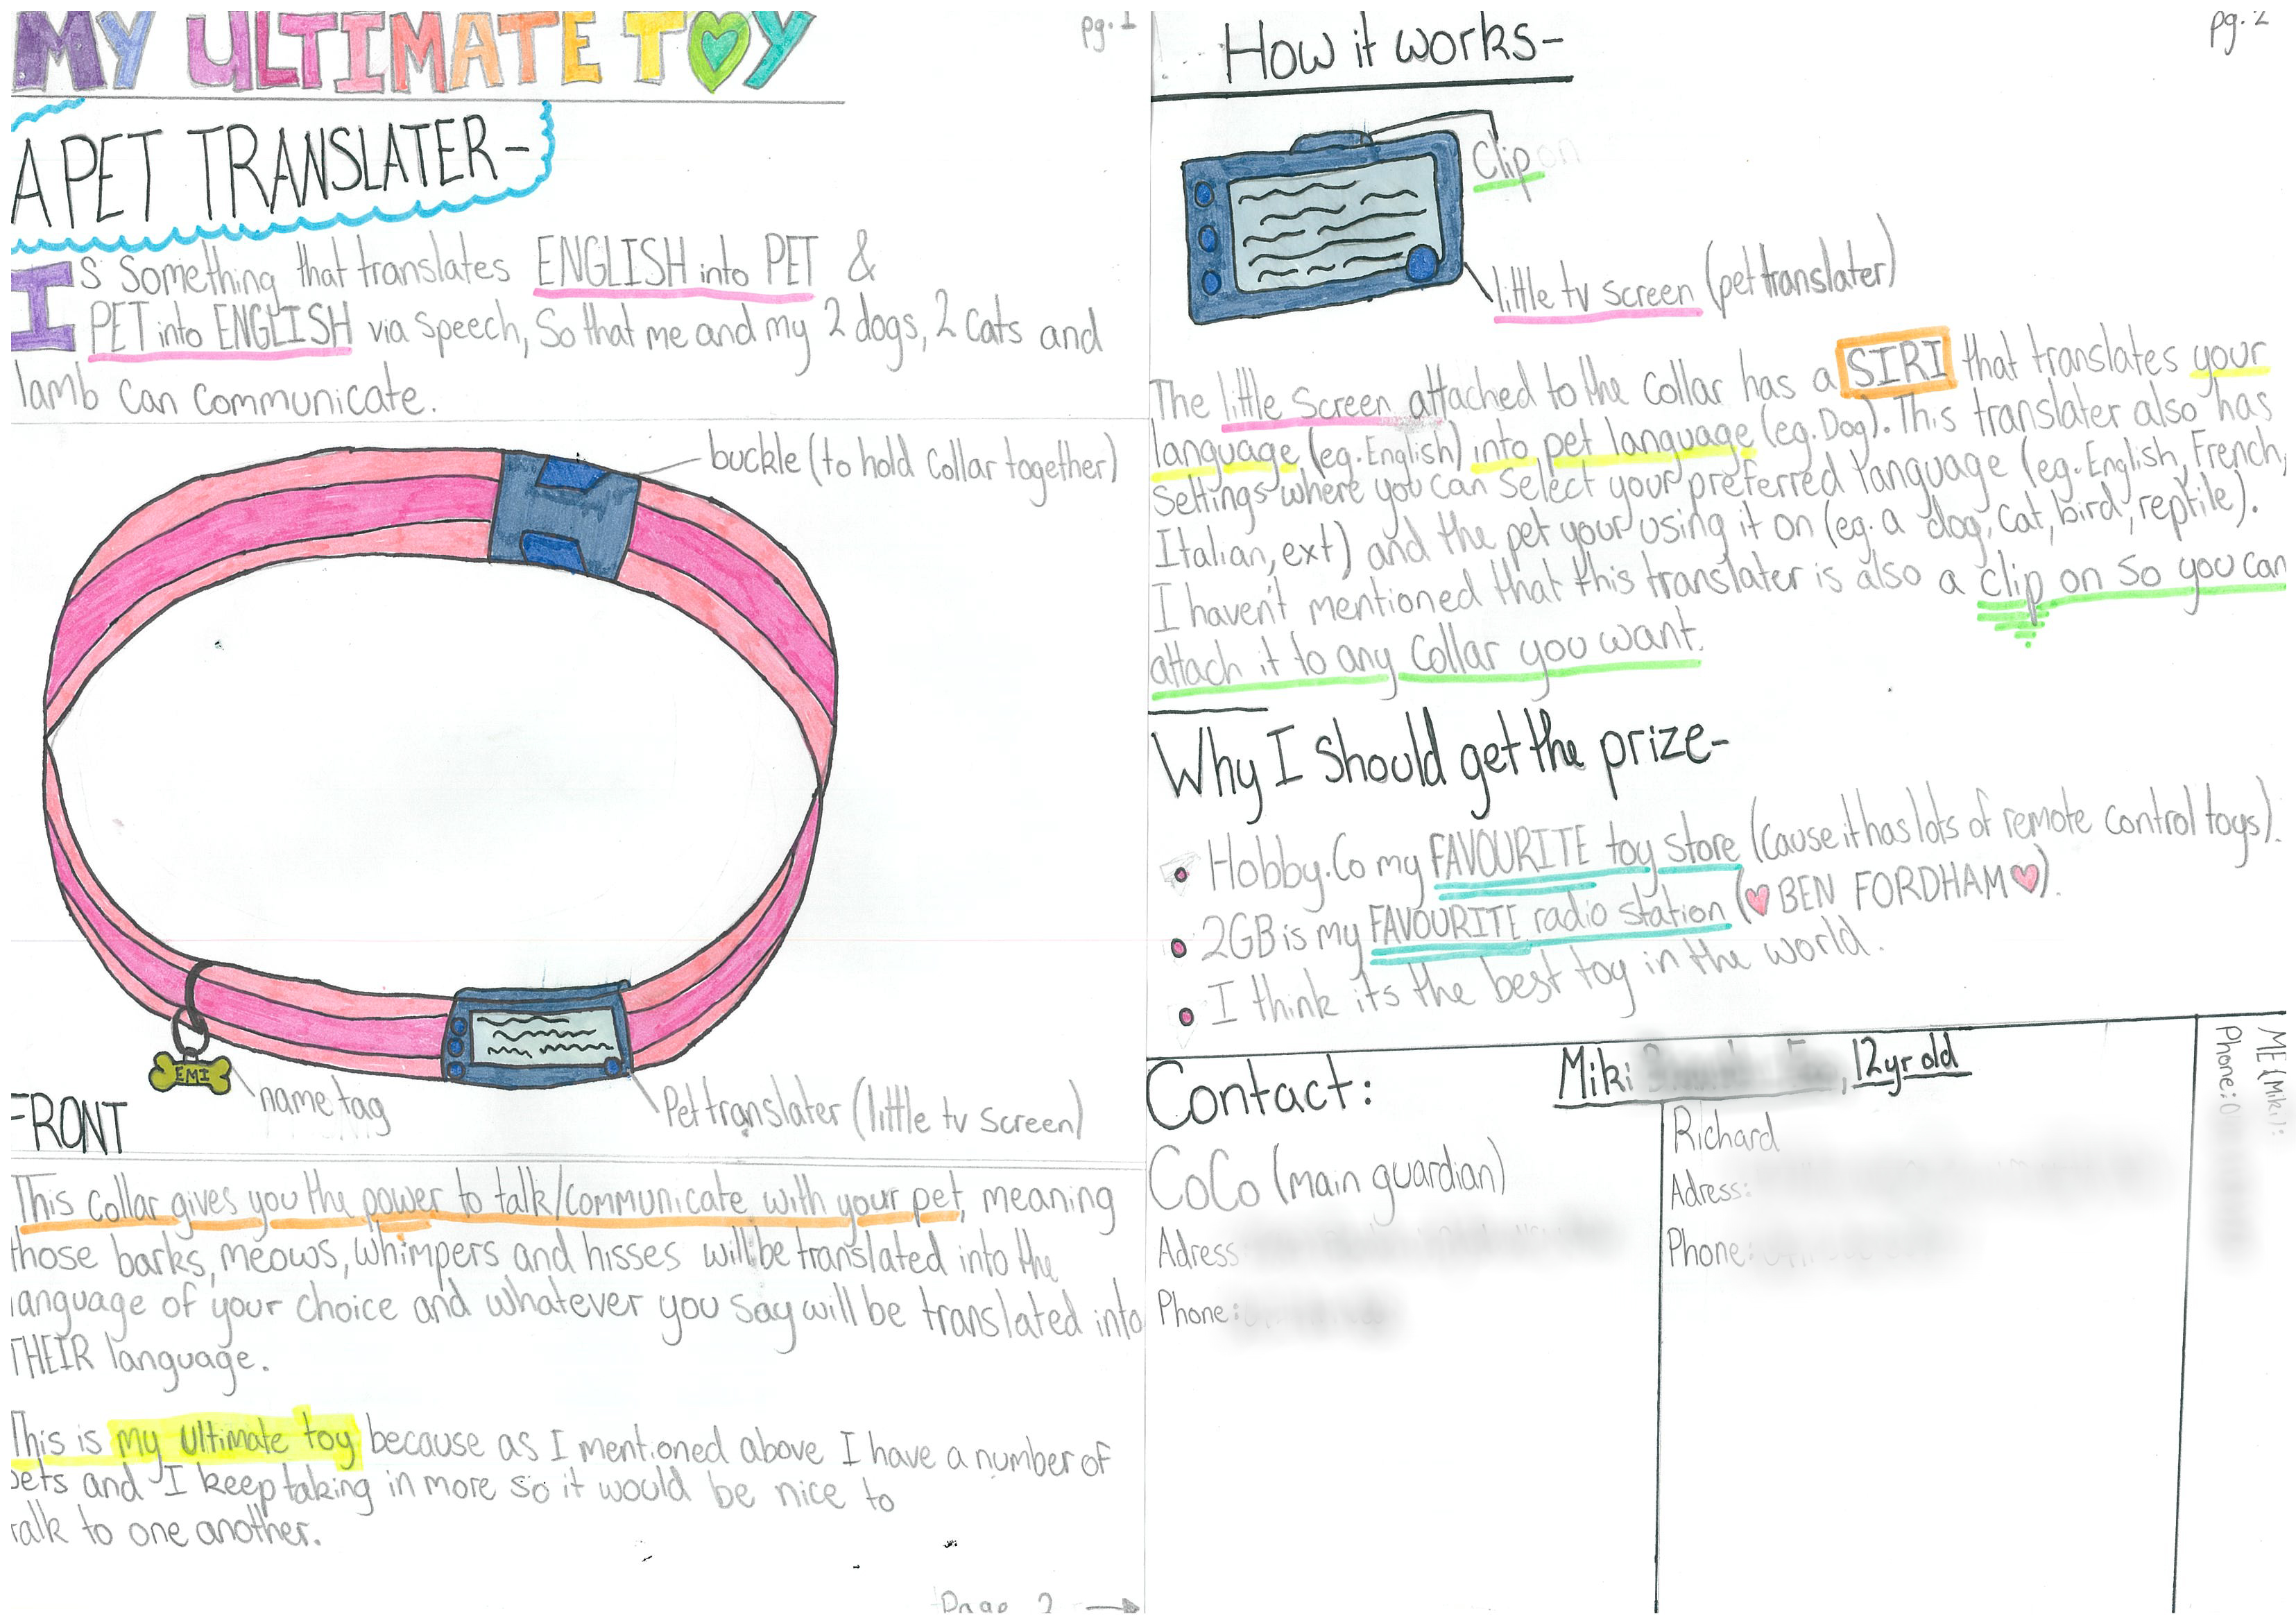 MY ULTIMATE TOY
pg. 1
A PET TRANSLATER-
Is Something that translates ENGLISH into PET &
PET into ENGLISH via speech, So that me and my 2 dogs, 2 cats and
lamb can communicate.
buckle (to hold collar together)
EMI
name tag
Pet translater (little tv screen)
FRONT
This collar gives you the power to talk/communicate with your pet, meaning
those barks, meows, whimpers and hisses will be translated into the
language of your choice and whatever you say will be translated into
THEIR language.
This is my ultimate toy because as I mentioned above I have a number of
pets and I keep taking in more so it would be nice to
talk to one another.
Page 2
pg. 2
How it works-
Clip on
little tv screen (pet translater)
The little screen attached to the collar has a SIRI that translates your
language (eg. English) into pet language (eg. Dog). This translater also has
settings where you can select your preferred language (eg. English, French,
Italian, ext) and the pet your using it on (eg. a dog, cat, bird, reptile).
I haven't mentioned that this translater is also a clip on so you can
attach it to any collar you want.
Why I should get the prize-
• Hobby.Co my FAVOURITE toy store (cause it has lots of remote control toys).
• 2GB is my FAVOURITE radio station (♥ BEN FORDHAM ♥).
• I think its the best toy in the world.
Contact:
Miki , 12yr old
CoCo (main guardian)
Adress
Phone:
Richard
Adress:
Phone:
ME (Miki):
Phone: 0